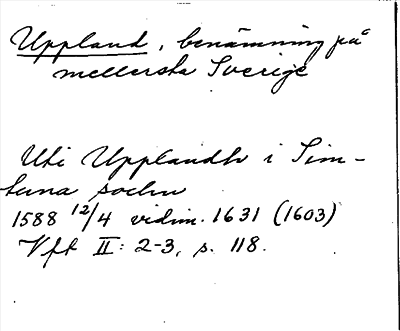 Uppland, benämning på
mellersta Sverige
Uti Upplandh i Sim-
tuna sochn
1588 12/4 vidim. 1631 (1603)
Vft II: 2-3, s. 118.